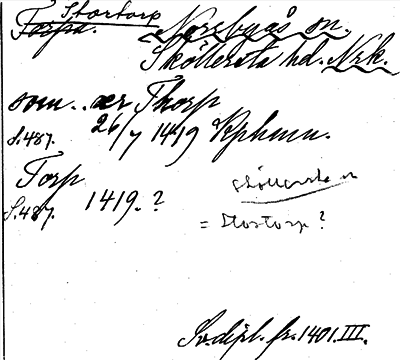 Stortorp
Torpa. Norrbyås sn.
Sköllersta hd. Nrk.
som.. ær Thorp
S.487. 26/7 1419 Kphmn.
Torp
S.487. 1419.?
Sköllersta sn
= Stortorp?
Sv.dipl. fr. 1401.III.